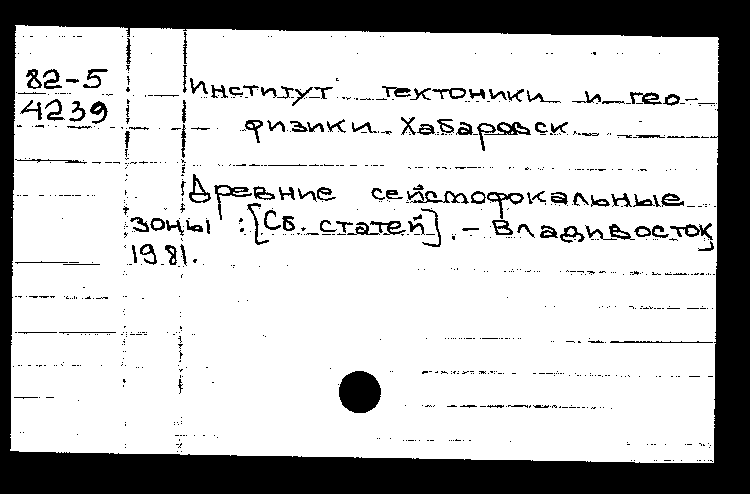 82-5
4239
Институт тектоники и гео-
физики. Хабаровск.
Древние сейсмофокальные
зоны : [Сб. статей]. - Владивосток,
1981.